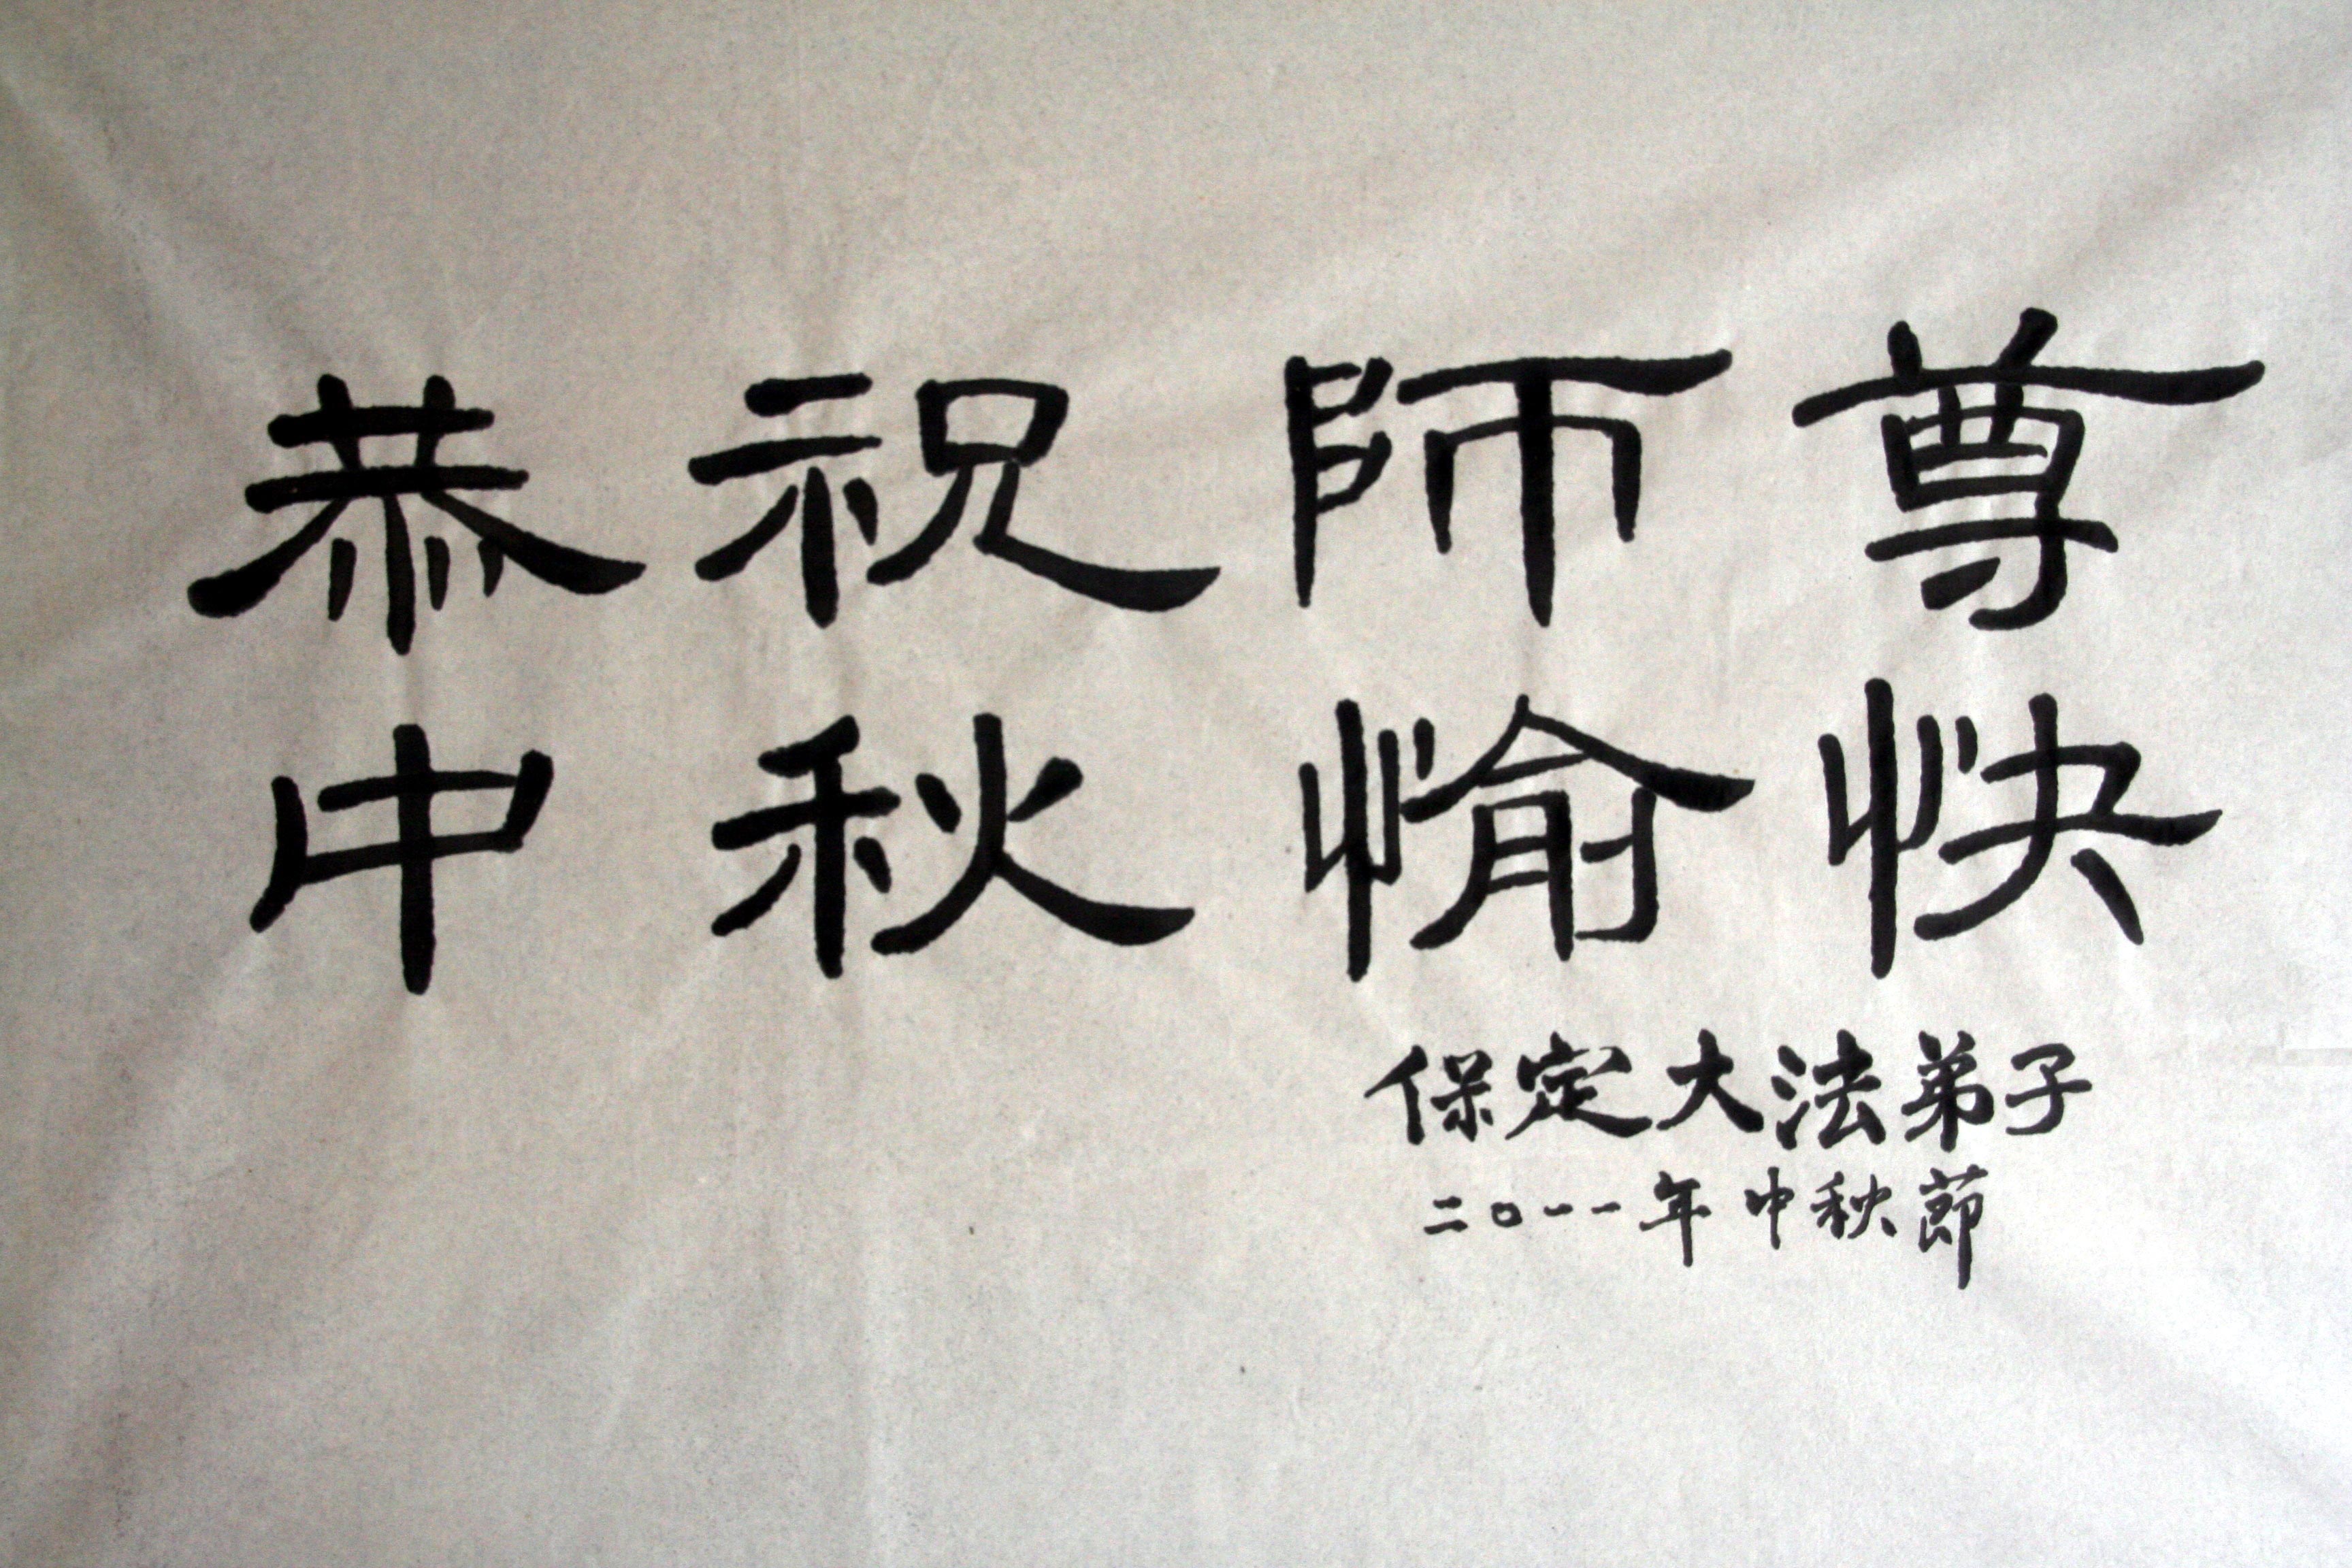 恭祝師尊
中秋愉快
保定大法弟子
二〇一一年中秋節